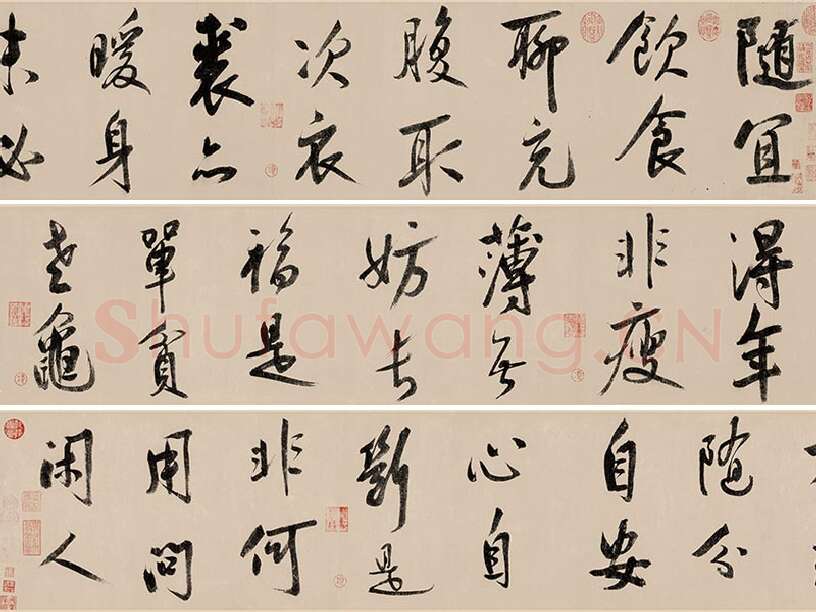 隨宜
飲食
聊充
腹取
次衣
裘亦
暖身
未必
得年
非瘦
薄无
妨长
福是
單貧
老龜
随分
自安
心自
斷是
非何
用問
闲人
Shufawang.CN